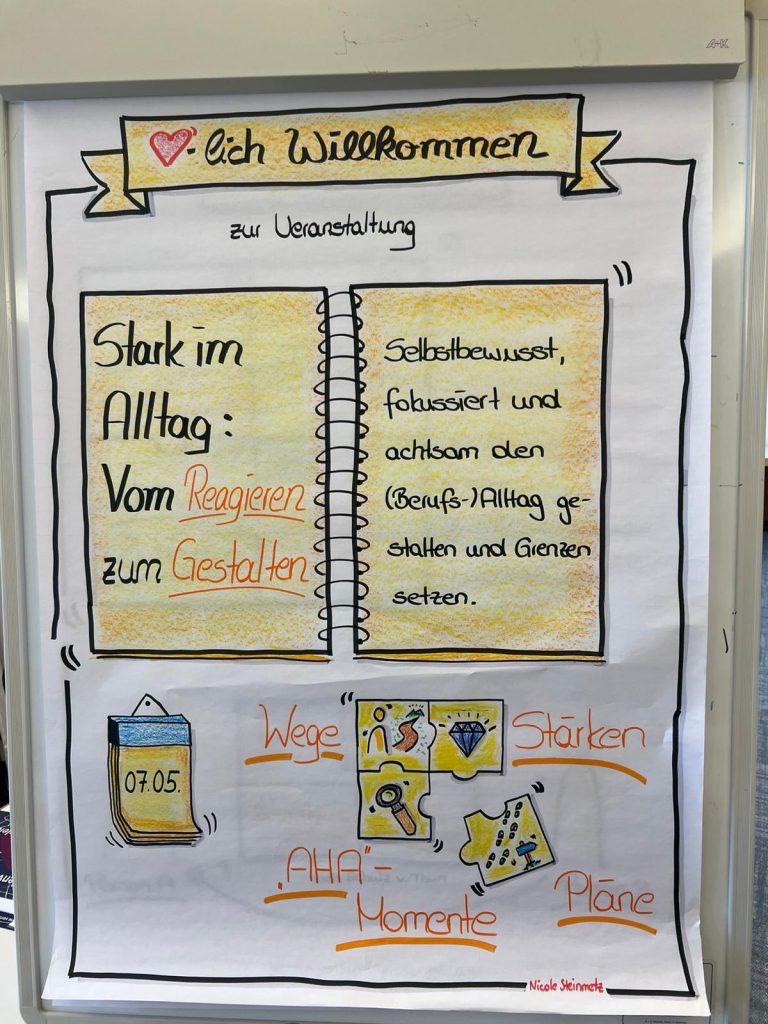 -lich Willkommen
zur Veranstaltung
Stark im
Alltag:
Vom Reagieren
zum Gestalten
Selbstbewusst,
fokussiert und
achtsam den
(Berufs-)Alltag ge-
stalten und Grenzen
setzen.
07.05.
Wege
Stärken
„AHA"-
Momente
Pläne
Nicole Steinmetz